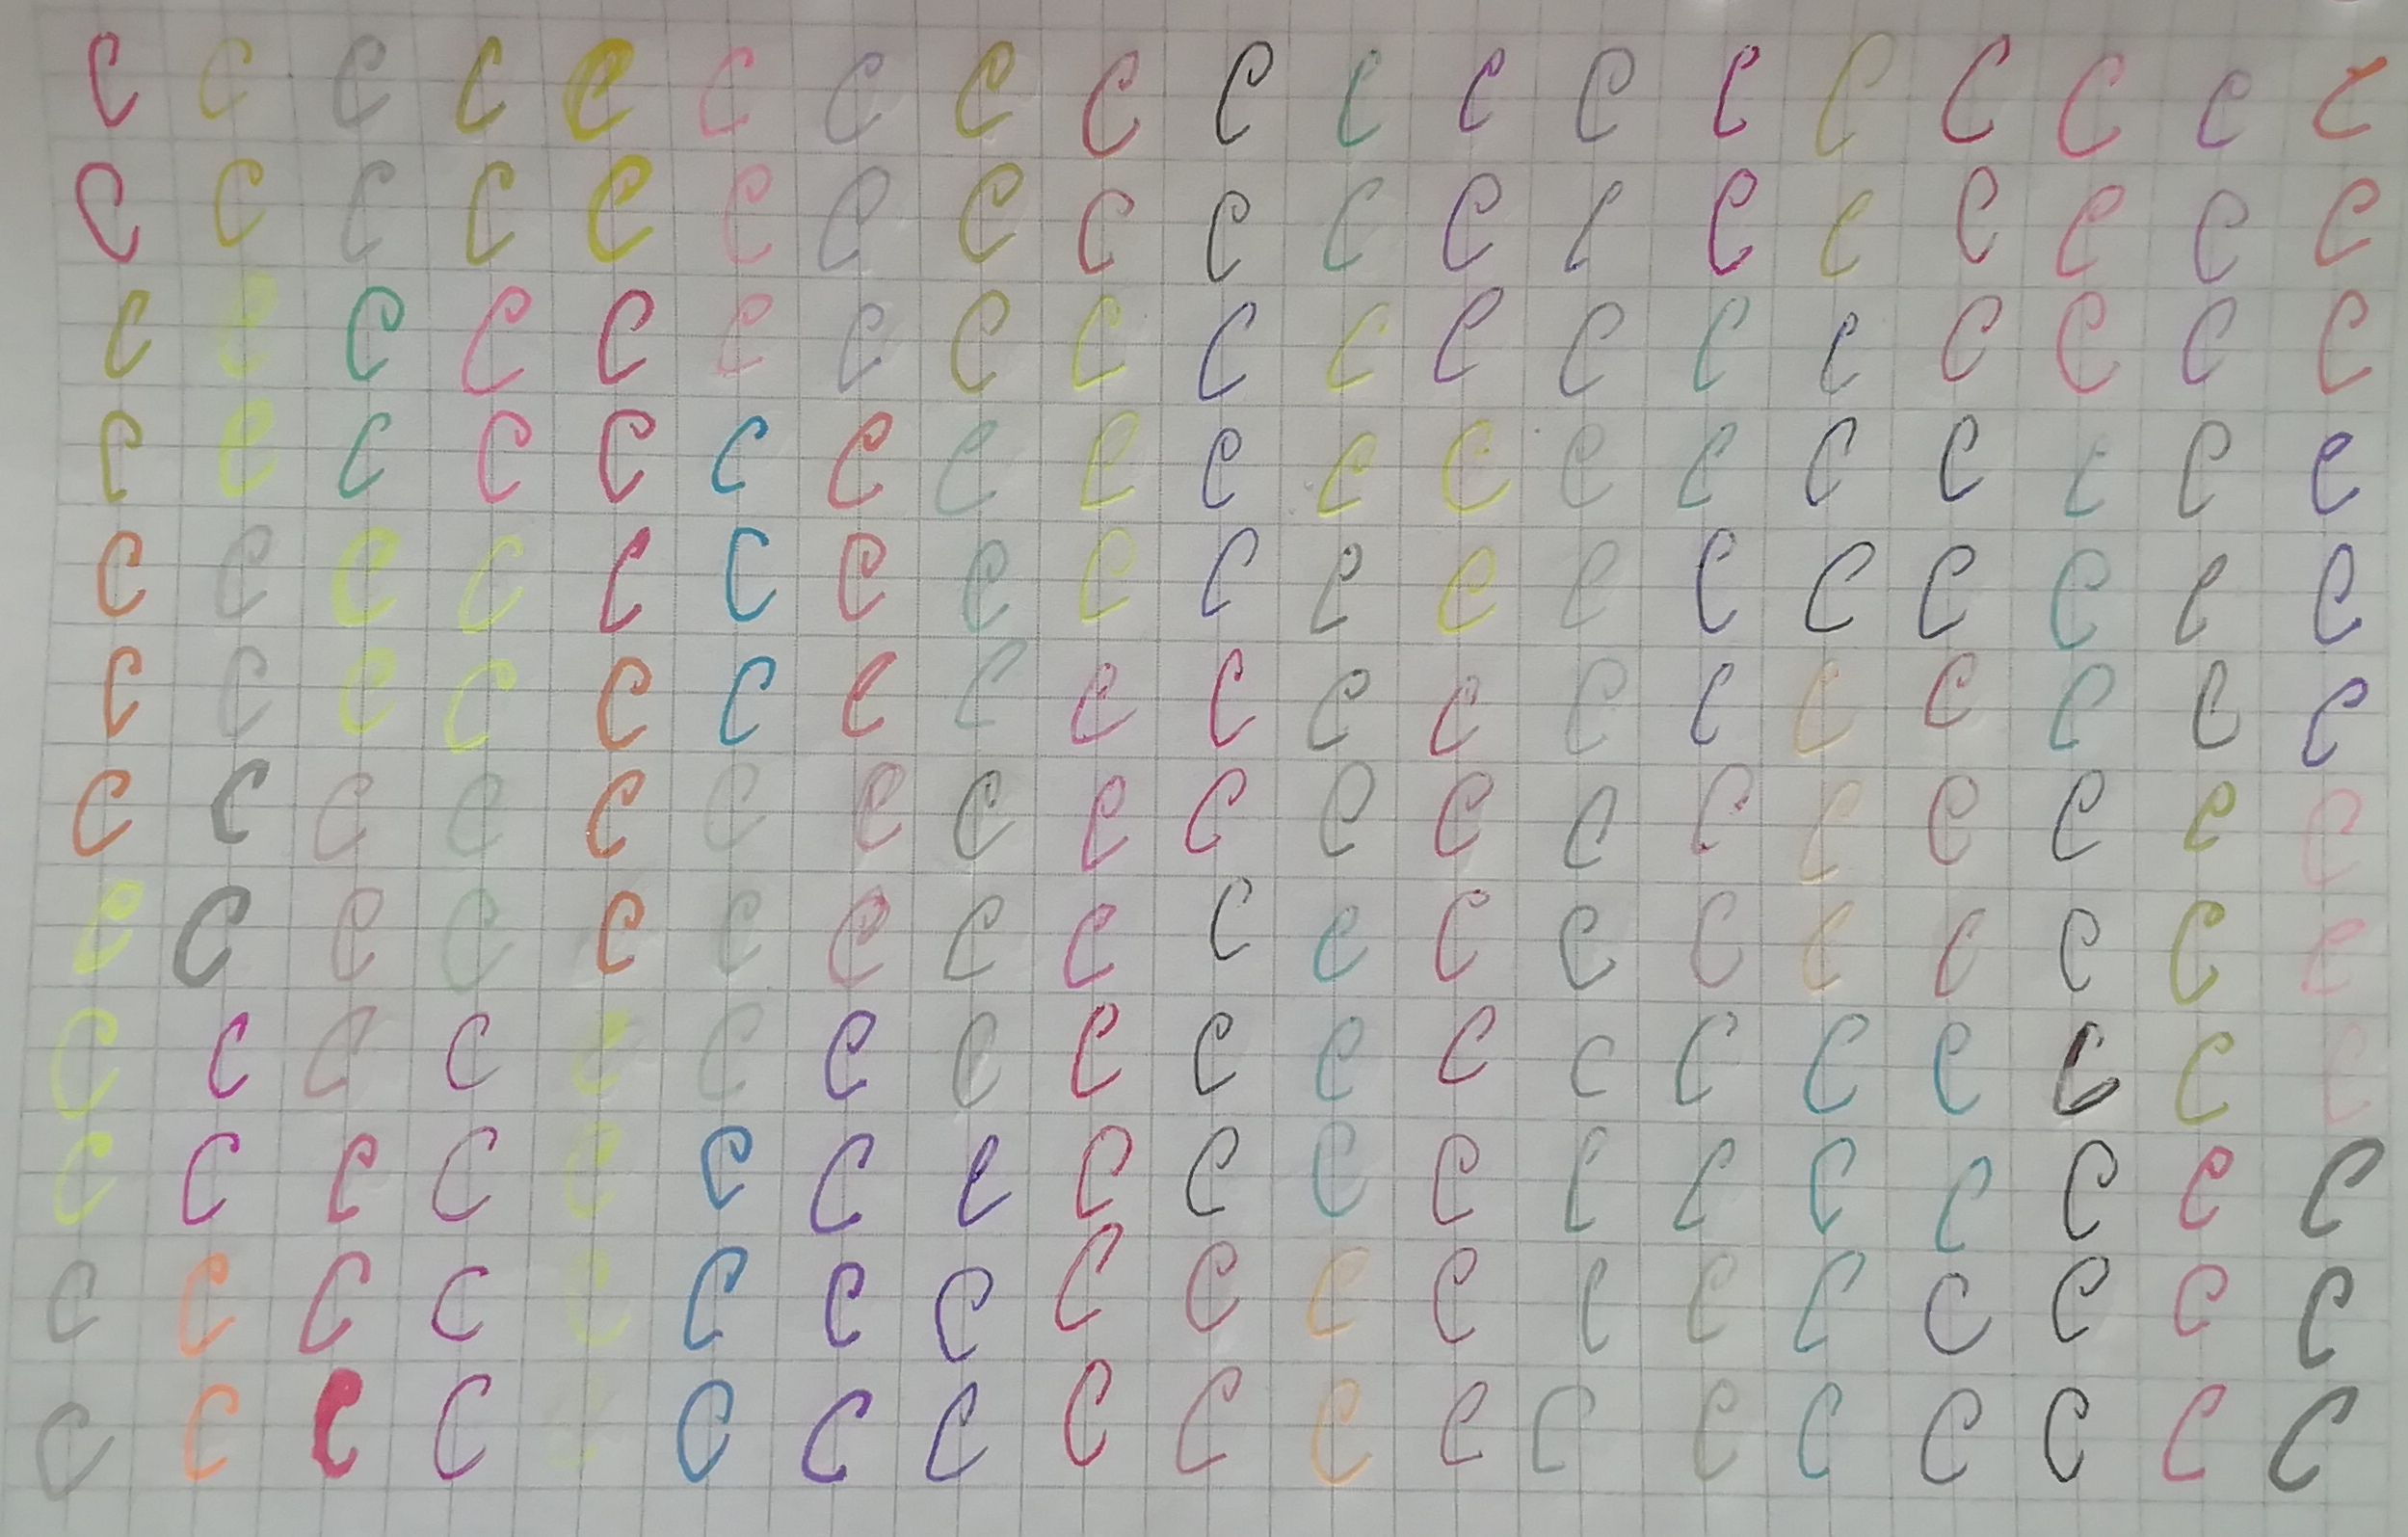 C C C C C C C C C C C C C C C C C C C
C C C C C C C C C C C C C C C C C C C
C C C C C C C C C C C C C C C C C C C
C C C C C C C C C C C C C C C C C C C
C C C C C C C C C C C C C C C C C C C
C C C C C C C C C C C C C C C C C C C
C C C C C C C C C C C C C C C C C C C
C C C C C C C C C C C C C C C C C C C
C C C C C C C C C C C C C C C C C C C
C C C C C C C C C C C C C C C C C C C
C C C C C C C C C C C C C C C C C C C
C C C C C C C C C C C C C C C C C C C